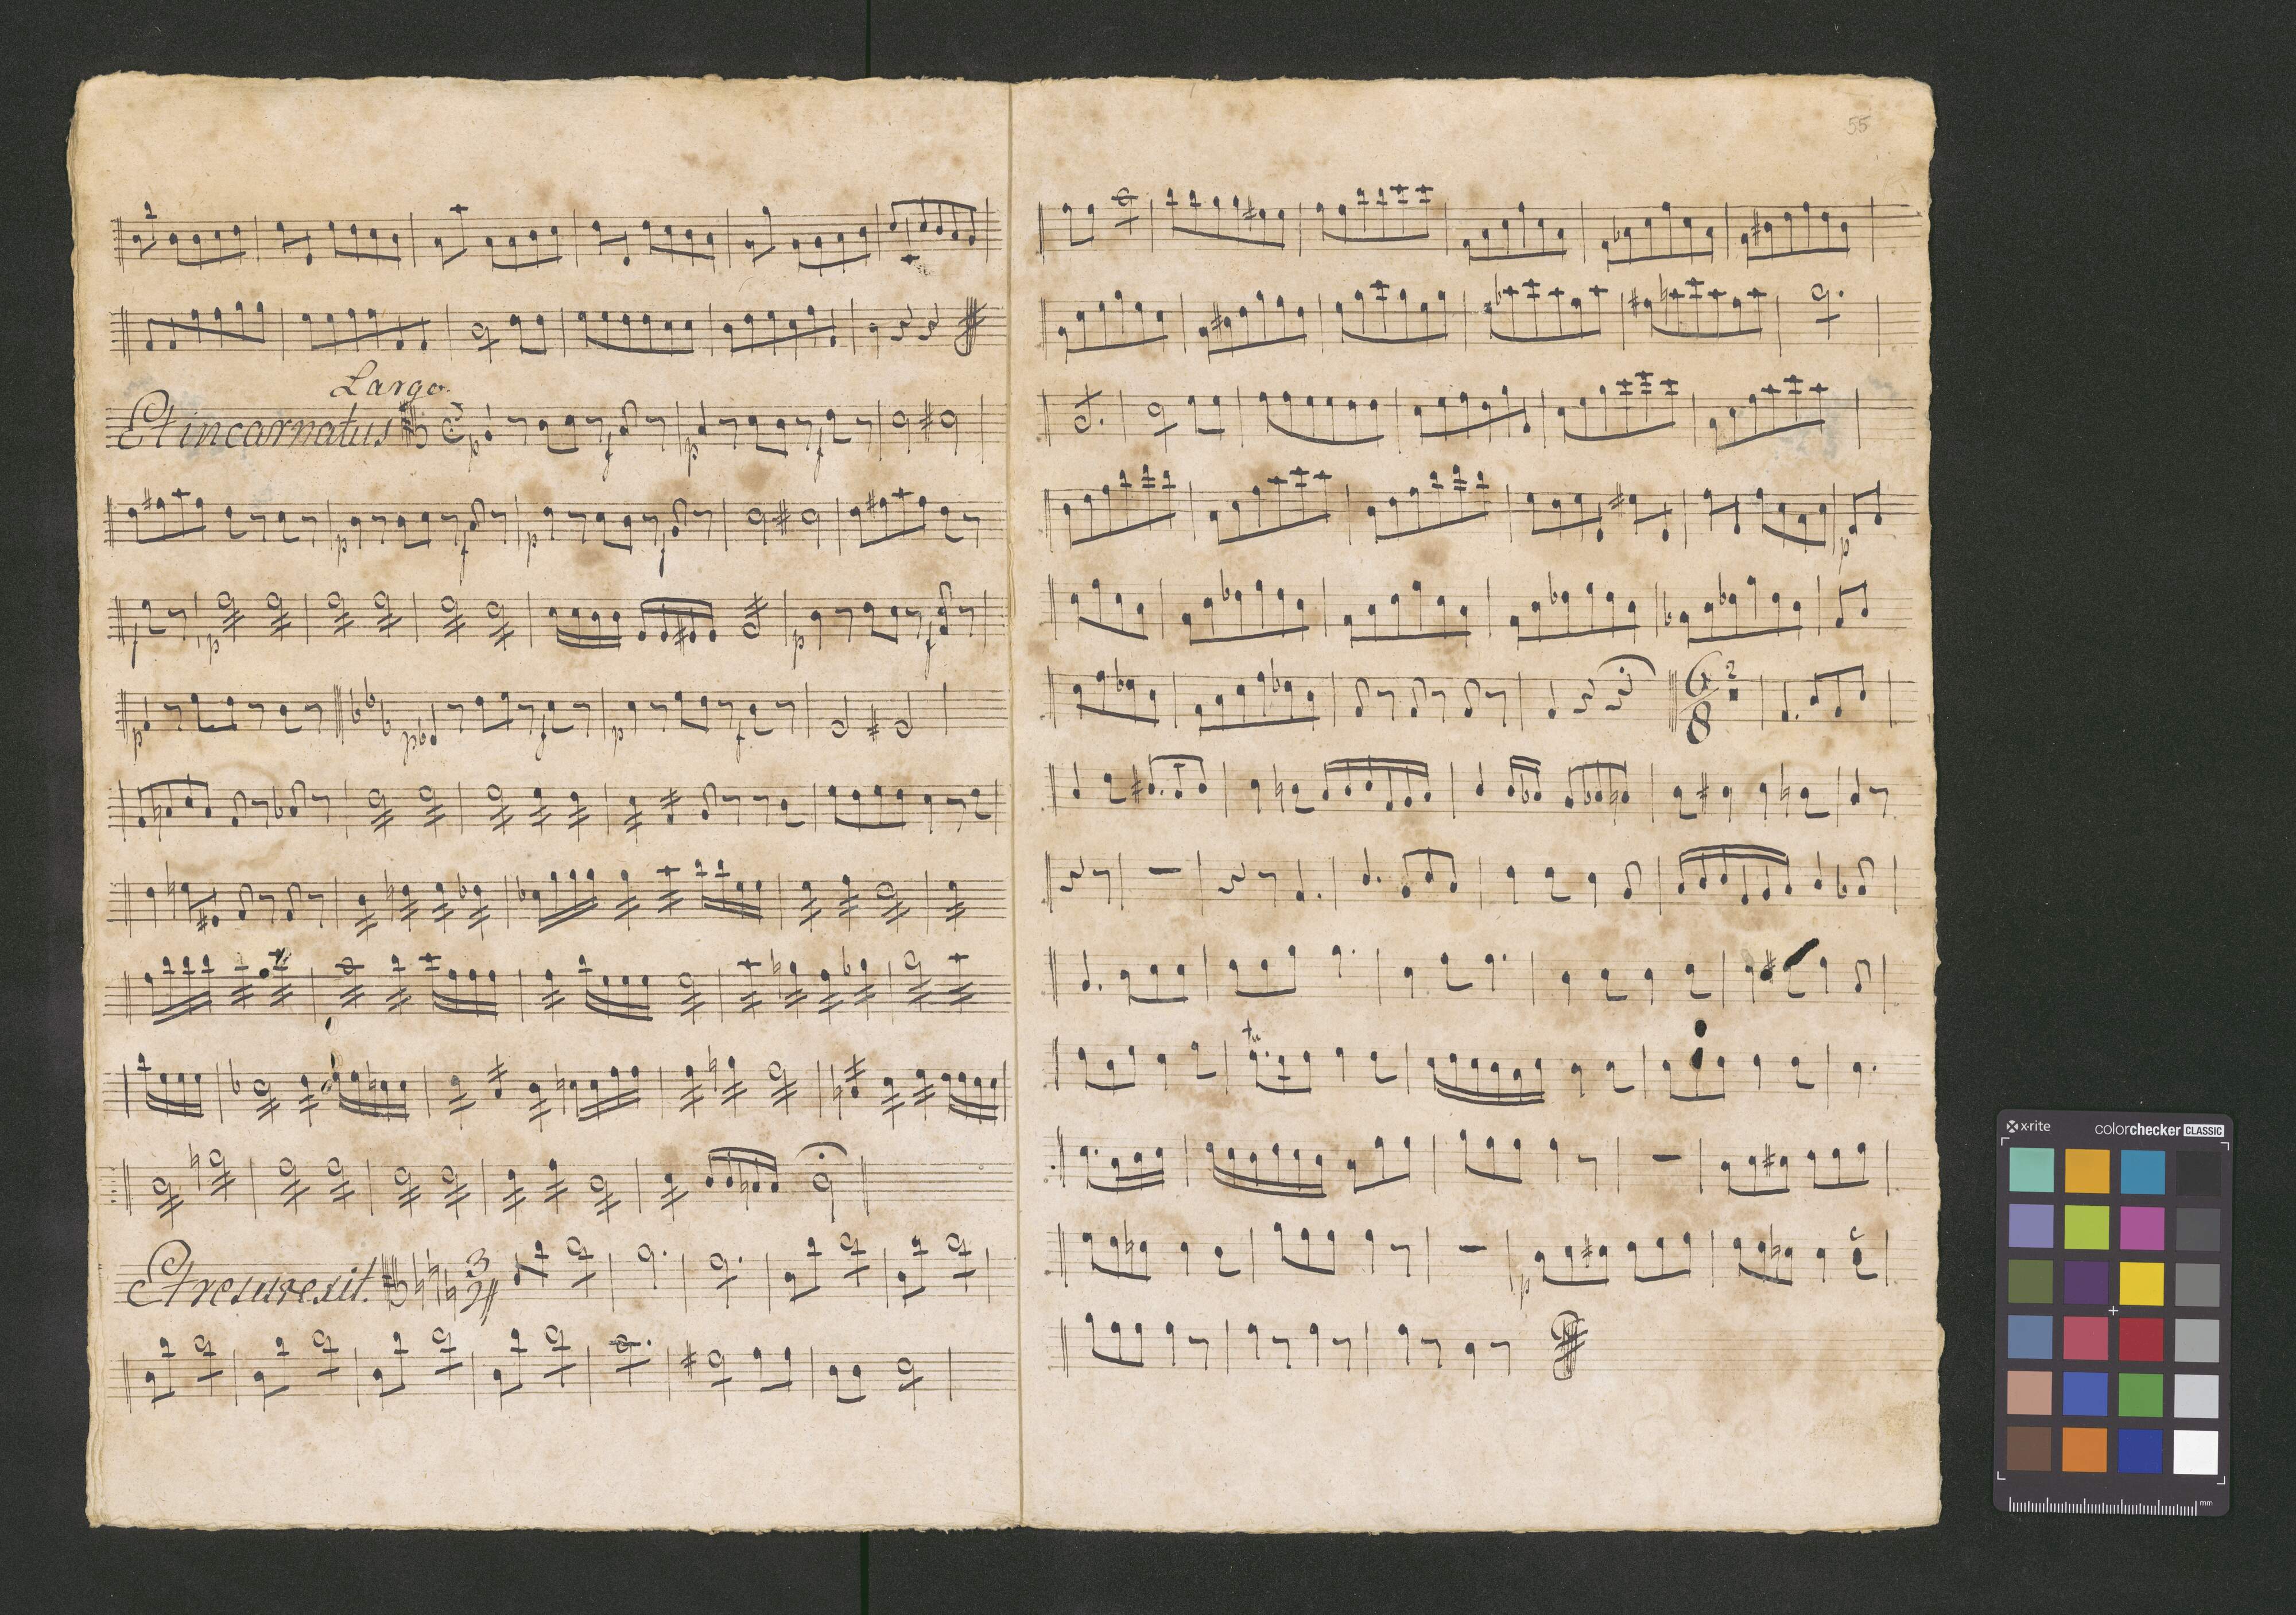 Largo.
Et incarnatus
C
p f p f
p f p f
f p p f
p p f p f
Et resurexit.
3
55
p
6 2
8
tr
p
x-rite colorchecker CLASSIC
mm